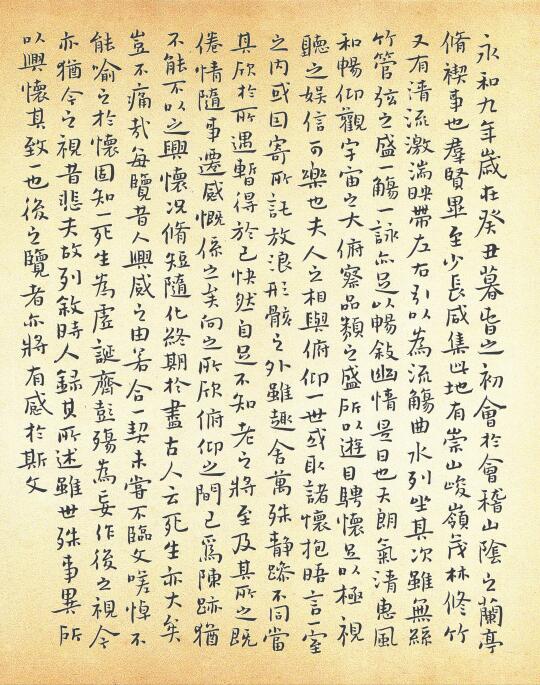 永和九年歲在癸丑暮春之初會於會稽山陰之蘭亭
脩禊事也羣賢畢至少長咸集此地有崇山峻嶺茂林修竹
又有清流激湍映帶左右引以為流觴曲水列坐其次雖無絲
竹管弦之盛一觴一詠亦足以暢敘幽情是日也天朗氣清惠風
和暢仰觀宇宙之大俯察品類之盛所以遊目騁懷足以極視
聽之娛信可樂也夫人之相與俯仰一世或取諸懷抱晤言一室
之內或因寄所託放浪形骸之外雖趣舍萬殊静躁不同當
其欣於所遇暫得於己快然自足不知老之將至及其所之既
倦情隨事遷感慨係之矣向之所欣俯仰之間已爲陳跡猶
不能不以之興懷況脩短隨化終期於盡古人云死生亦大矣
豈不痛哉每覽昔人興感之由若合一契未嘗不臨文嗟悼不
能喻之於懷固知一死生為虛誕齊彭殤為妄作後之視今
亦猶今之視昔悲夫故列敘時人錄其所述雖世殊事異所
以興懷其致一也後之覽者亦將有感於斯文